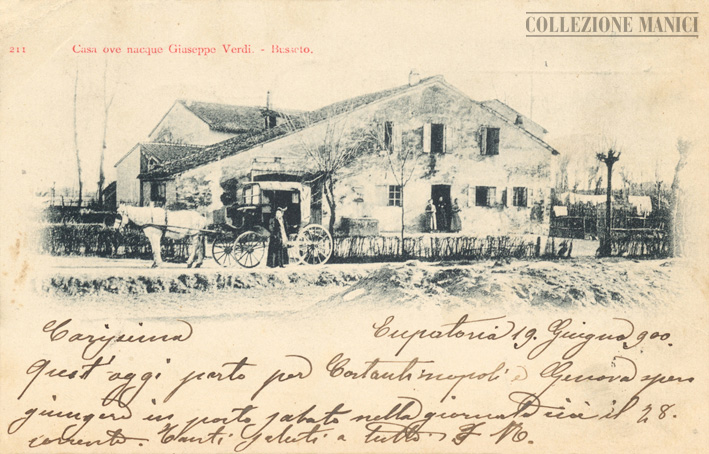 COLLEZIONE MANICI
211 Casa ove nacque Giuseppe Verdi. - Busseto.
Carissima Eupatoria 19 Giugno 900.
Quest'oggi parto per Costantinopoli e Genova spero
giungere in porto sabato nella giornata cioè il 28.
corrente. Tanti Saluti a tutti